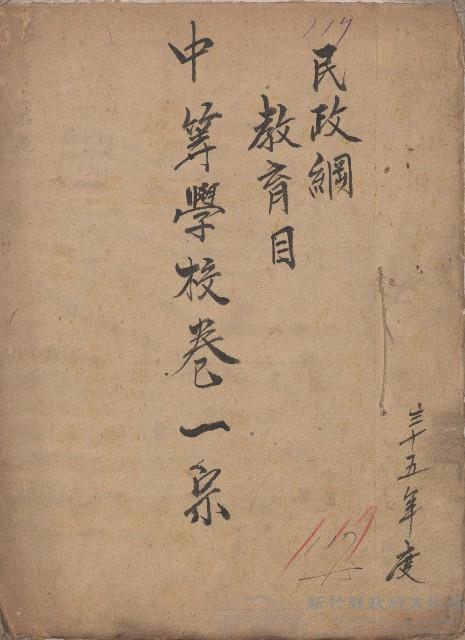 119
民政綱
教育目
中等學校卷一宗
三十五年度
119
新竹縣政府文化局